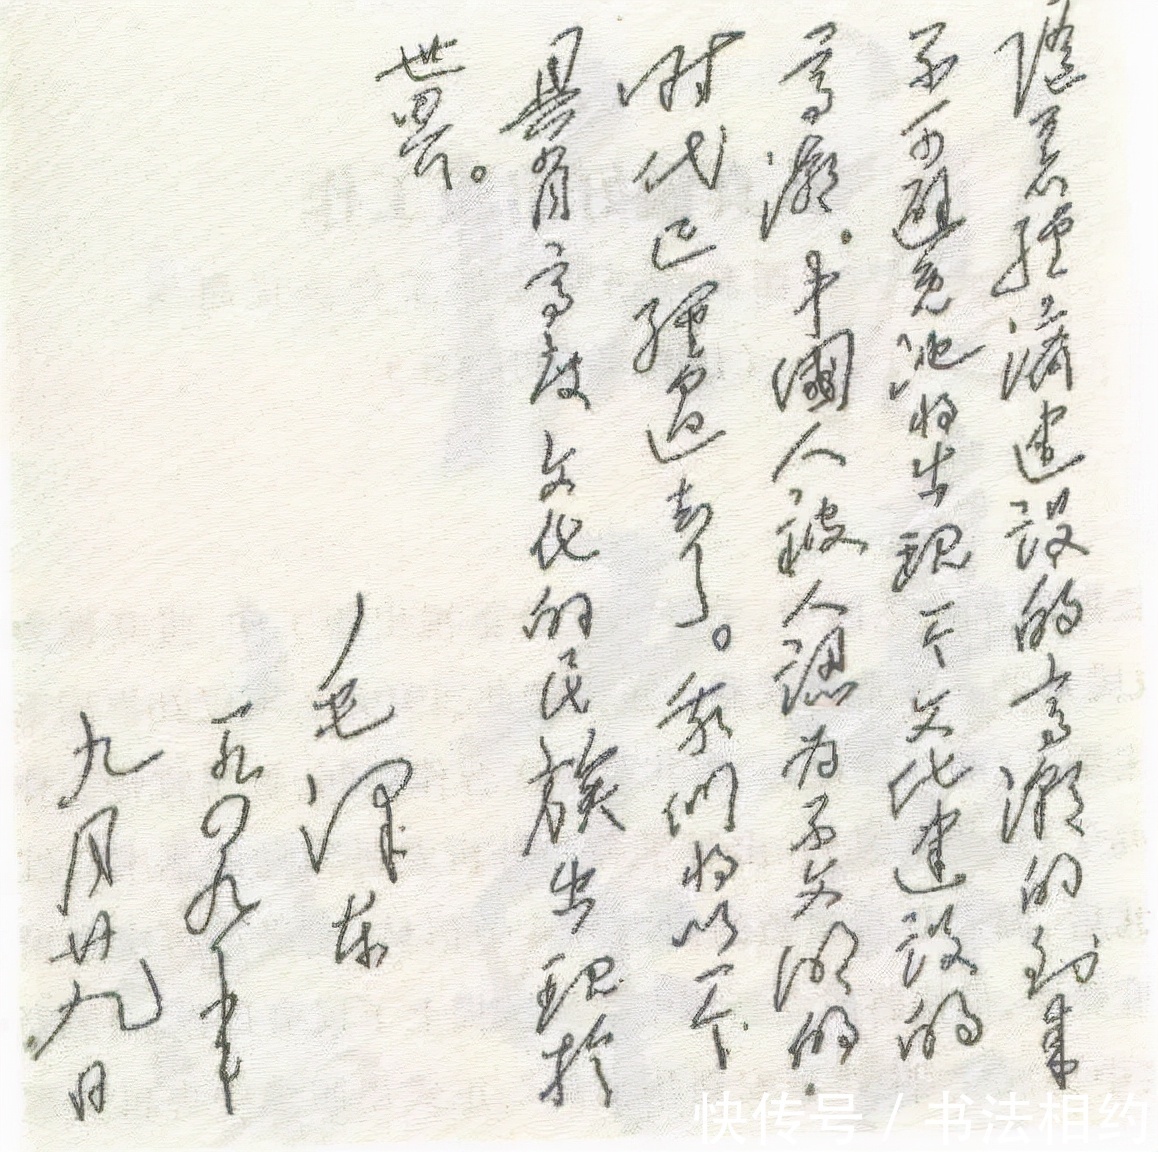 随着經濟建設的高潮的到来
不可避免地将出現一个文化建設的
高潮。中國人被人認为不文明的
时代已經過去了。我們将以一个
具有高度文化的民族出現於
世界。
毛澤东
一九四九年
九月廿九日
快传号 / 书法相约